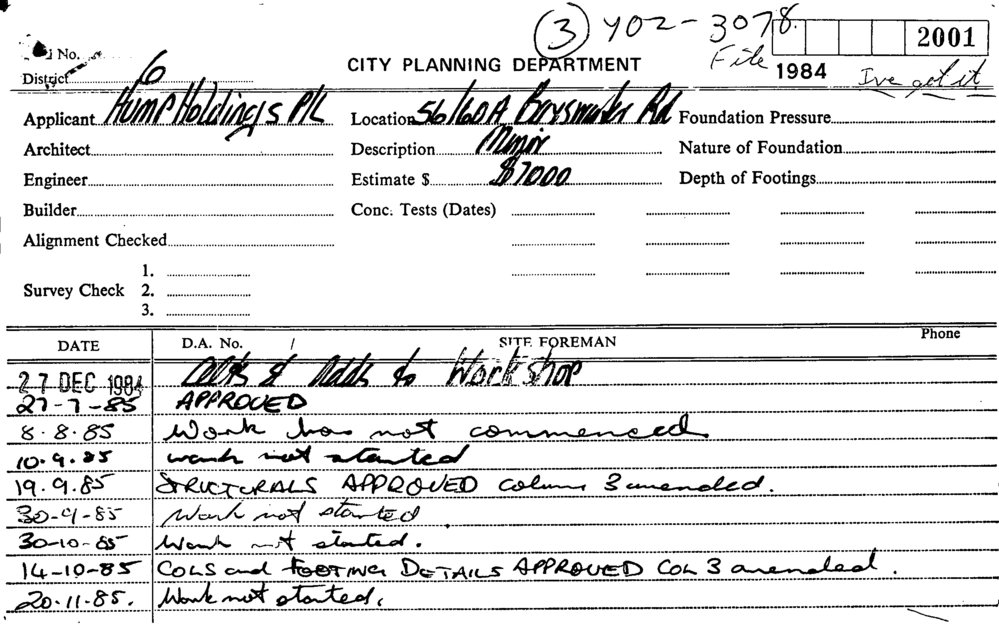 3 Y02-3078.
No. File 2001
CITY PLANNING DEPARTMENT 1984 I've got it
District 6
Applicant Hump Holdings P/L Location 56/60A Rd Foundation Pressure
Architect Description Minor Nature of Foundation
Engineer Estimate $ $7000 Depth of Footings
Builder Conc. Tests (Dates)
Alignment Checked
1.
Survey Check 2.
3.
DATE D.A. No. / SITE FOREMAN Phone
27 DEC 1984 Alts & Adds to Workshop
27-7-85 APPROVED
8.8.85 Work has not commenced
10.9.85 work not started
19.9.85 STRUCTURALS APPROVED column 3 amended.
30-9-85 Work not started
30-10-85 Work not started.
14-10-85 COLS and FOOTING DETAILS APPROVED COL 3 amended.
20.11.85. Work not started.